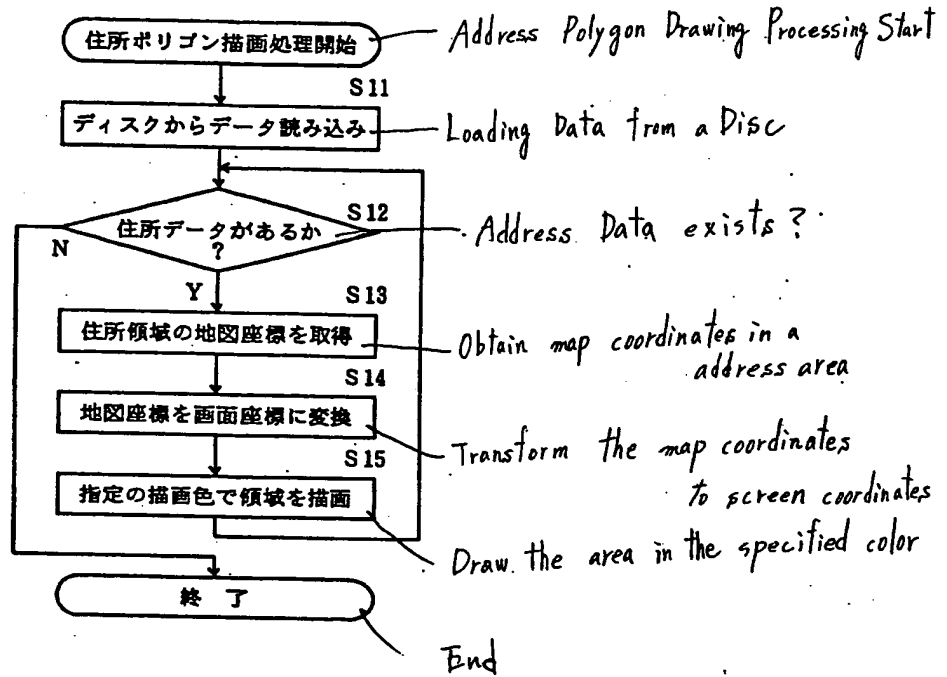 住所ポリゴン描画処理開始
Address Polygon Drawing Processing Start
S11
ディスクからデータ読み込み
Loading Data from a Disc
S12
住所データがあるか
?
Address Data exists?
N
Y
S13
住所領域の地図座標を取得
Obtain map coordinates in a
address area
S14
地図座標を画面座標に変換
Transform the map coordinates
to screen coordinates
S15
指定の描画色で領域を描画
Draw the area in the specified color
終 了
End